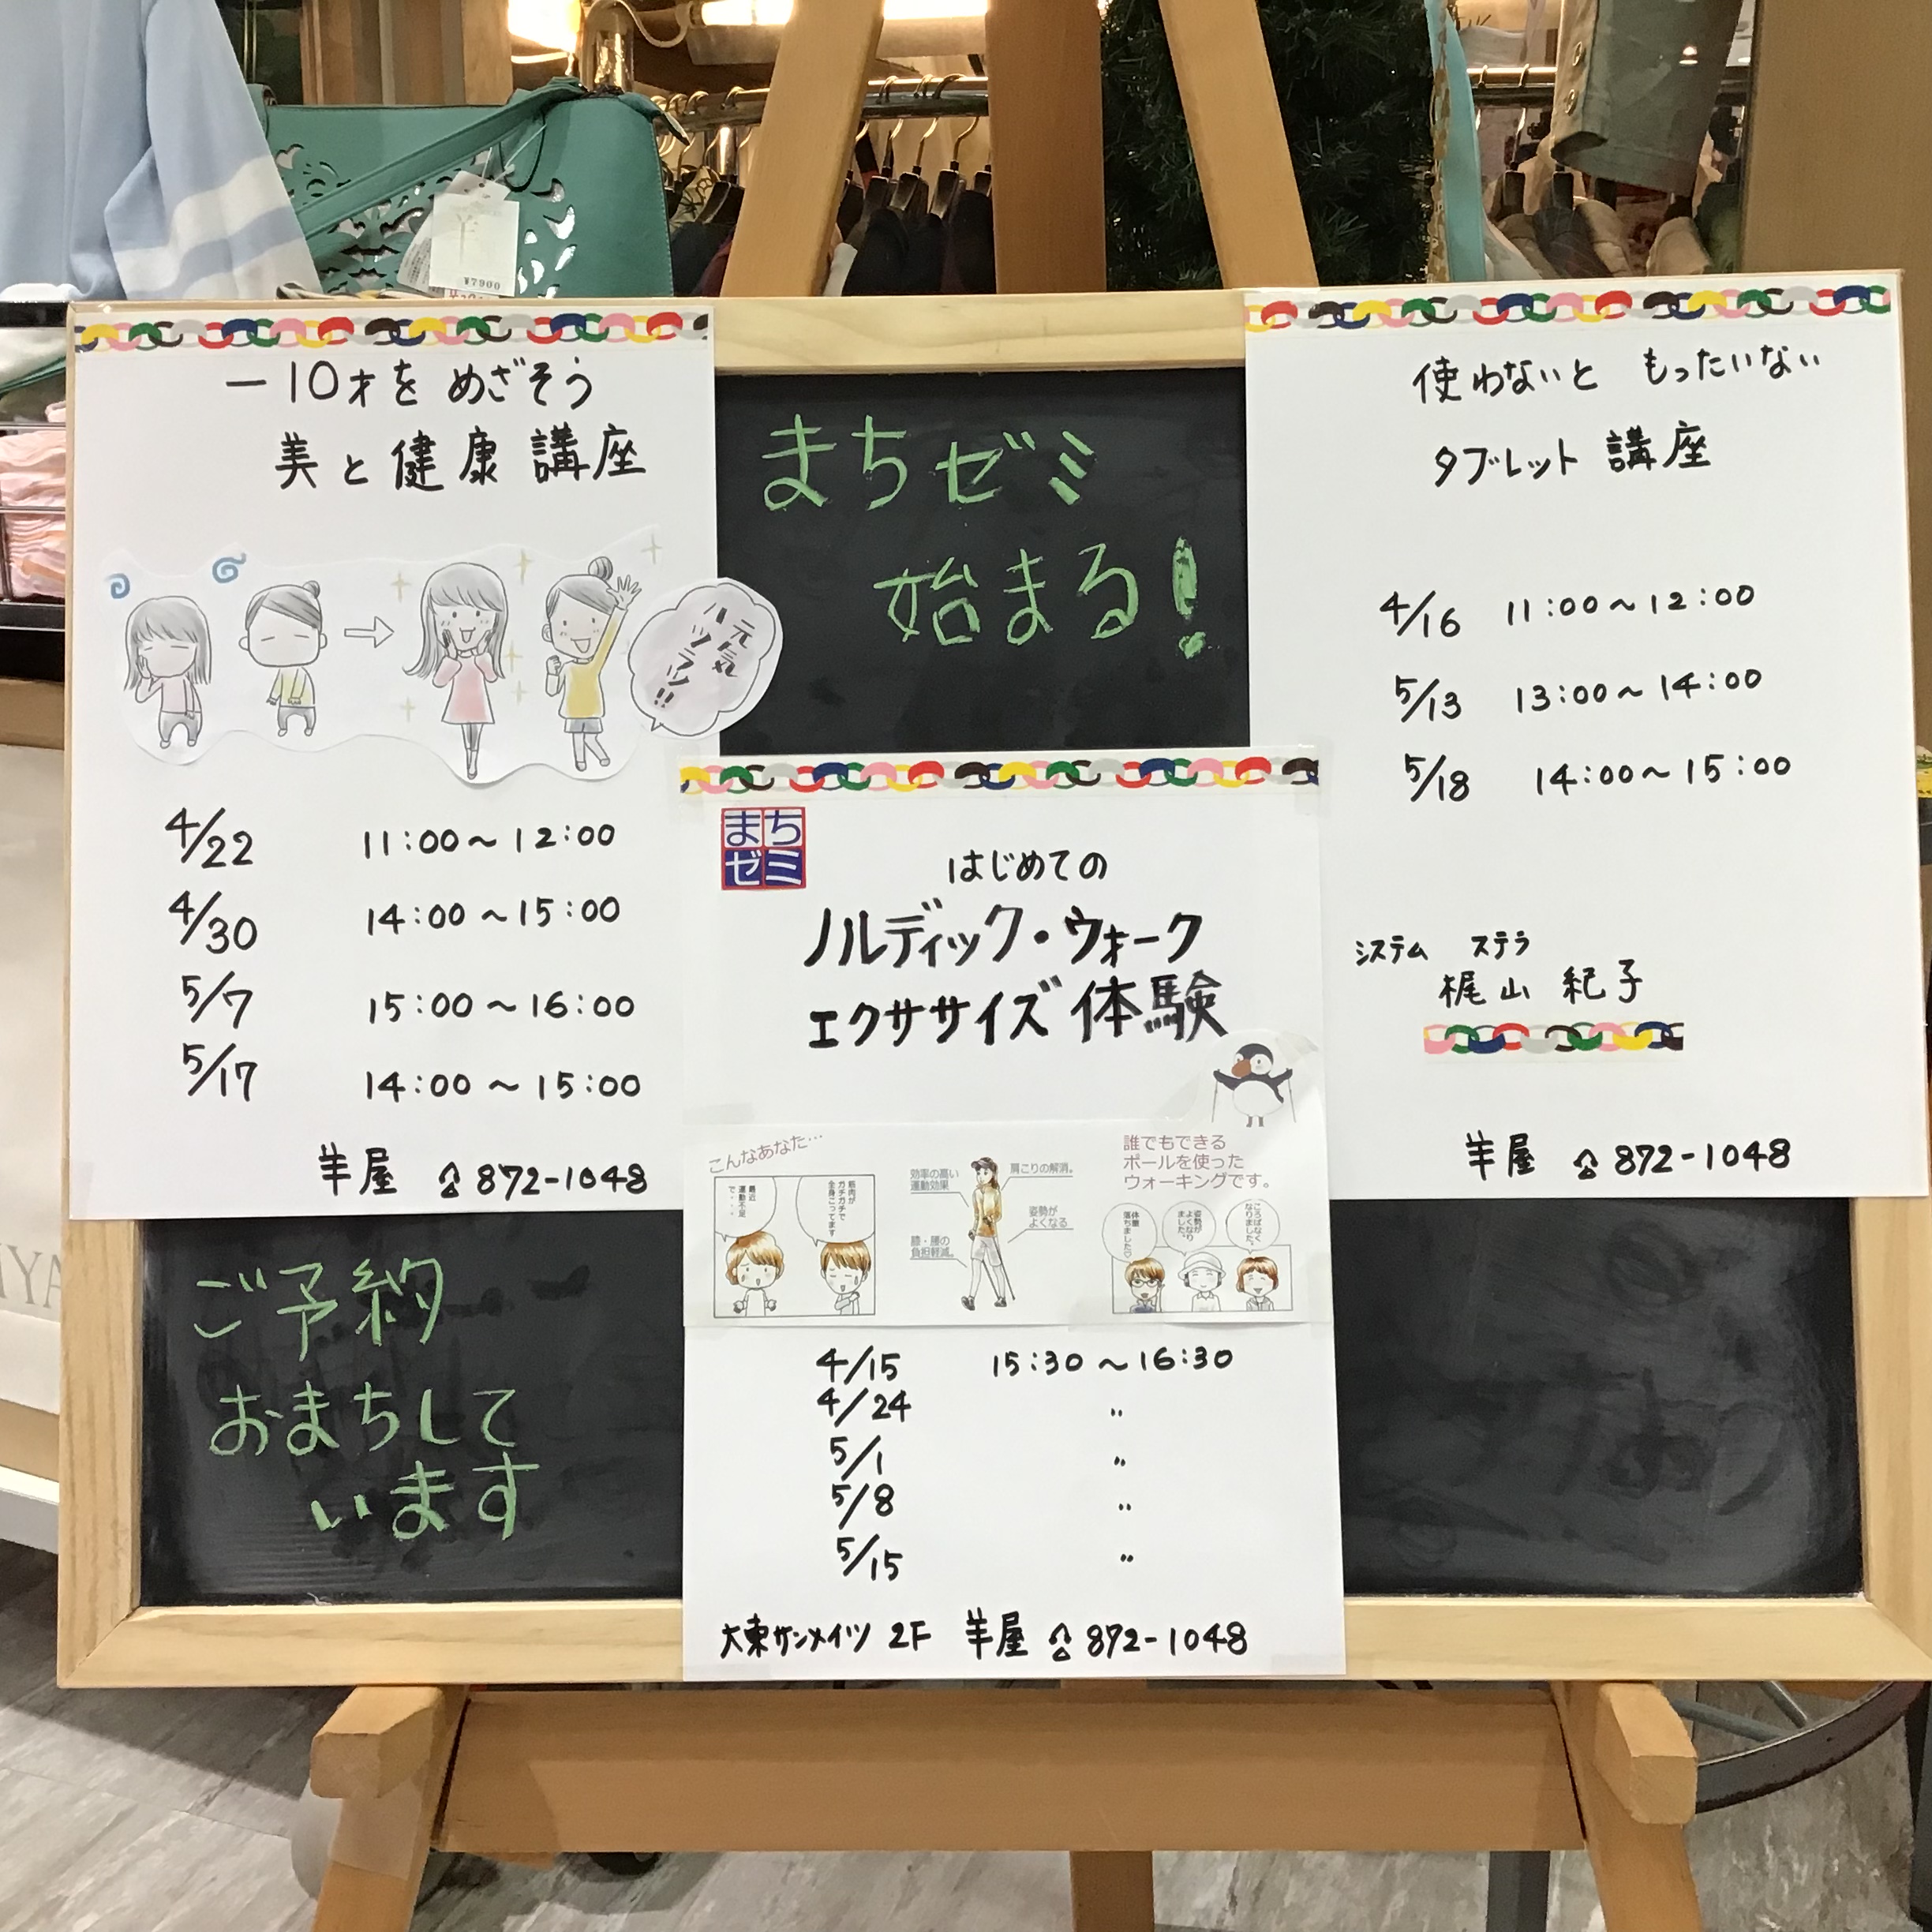 ¥7900
−10才を めざそう
美と健康講座
元気
ハツラツ!!
4/22 11:00～12:00
4/30 14:00～15:00
5/7 15:00～16:00
5/17 14:00～15:00
羊屋 872-1048
まちゼミ
始まる!
使わないと もったいない
タブレット 講座
4/16 11:00～12:00
5/13 13:00～14:00
5/18 14:00～15:00
システム ステラ
梶山 紀子
羊屋 872-1048
まち
ゼミ
はじめての
ノルディック・ウォーク
エクササイズ 体験
こんなあなた…
最近
運動不足
で・・・
筋肉が
ガチガチで
全身こってます
効率の高い
運動効果
肩こりの解消。
姿勢が
よくなる
膝・腰の
負担軽減。
誰でもできる
ポールを使った
ウォーキングです。
体重
落ちました♡
姿勢が
よくなり
ました。
ころばなく
なりました。
4/15 15:30～16:30
4/24 〃
5/1 〃
5/8 〃
5/15 〃
大東サンメイツ 2F 羊屋 872-1048
ご予約
おまちして
います